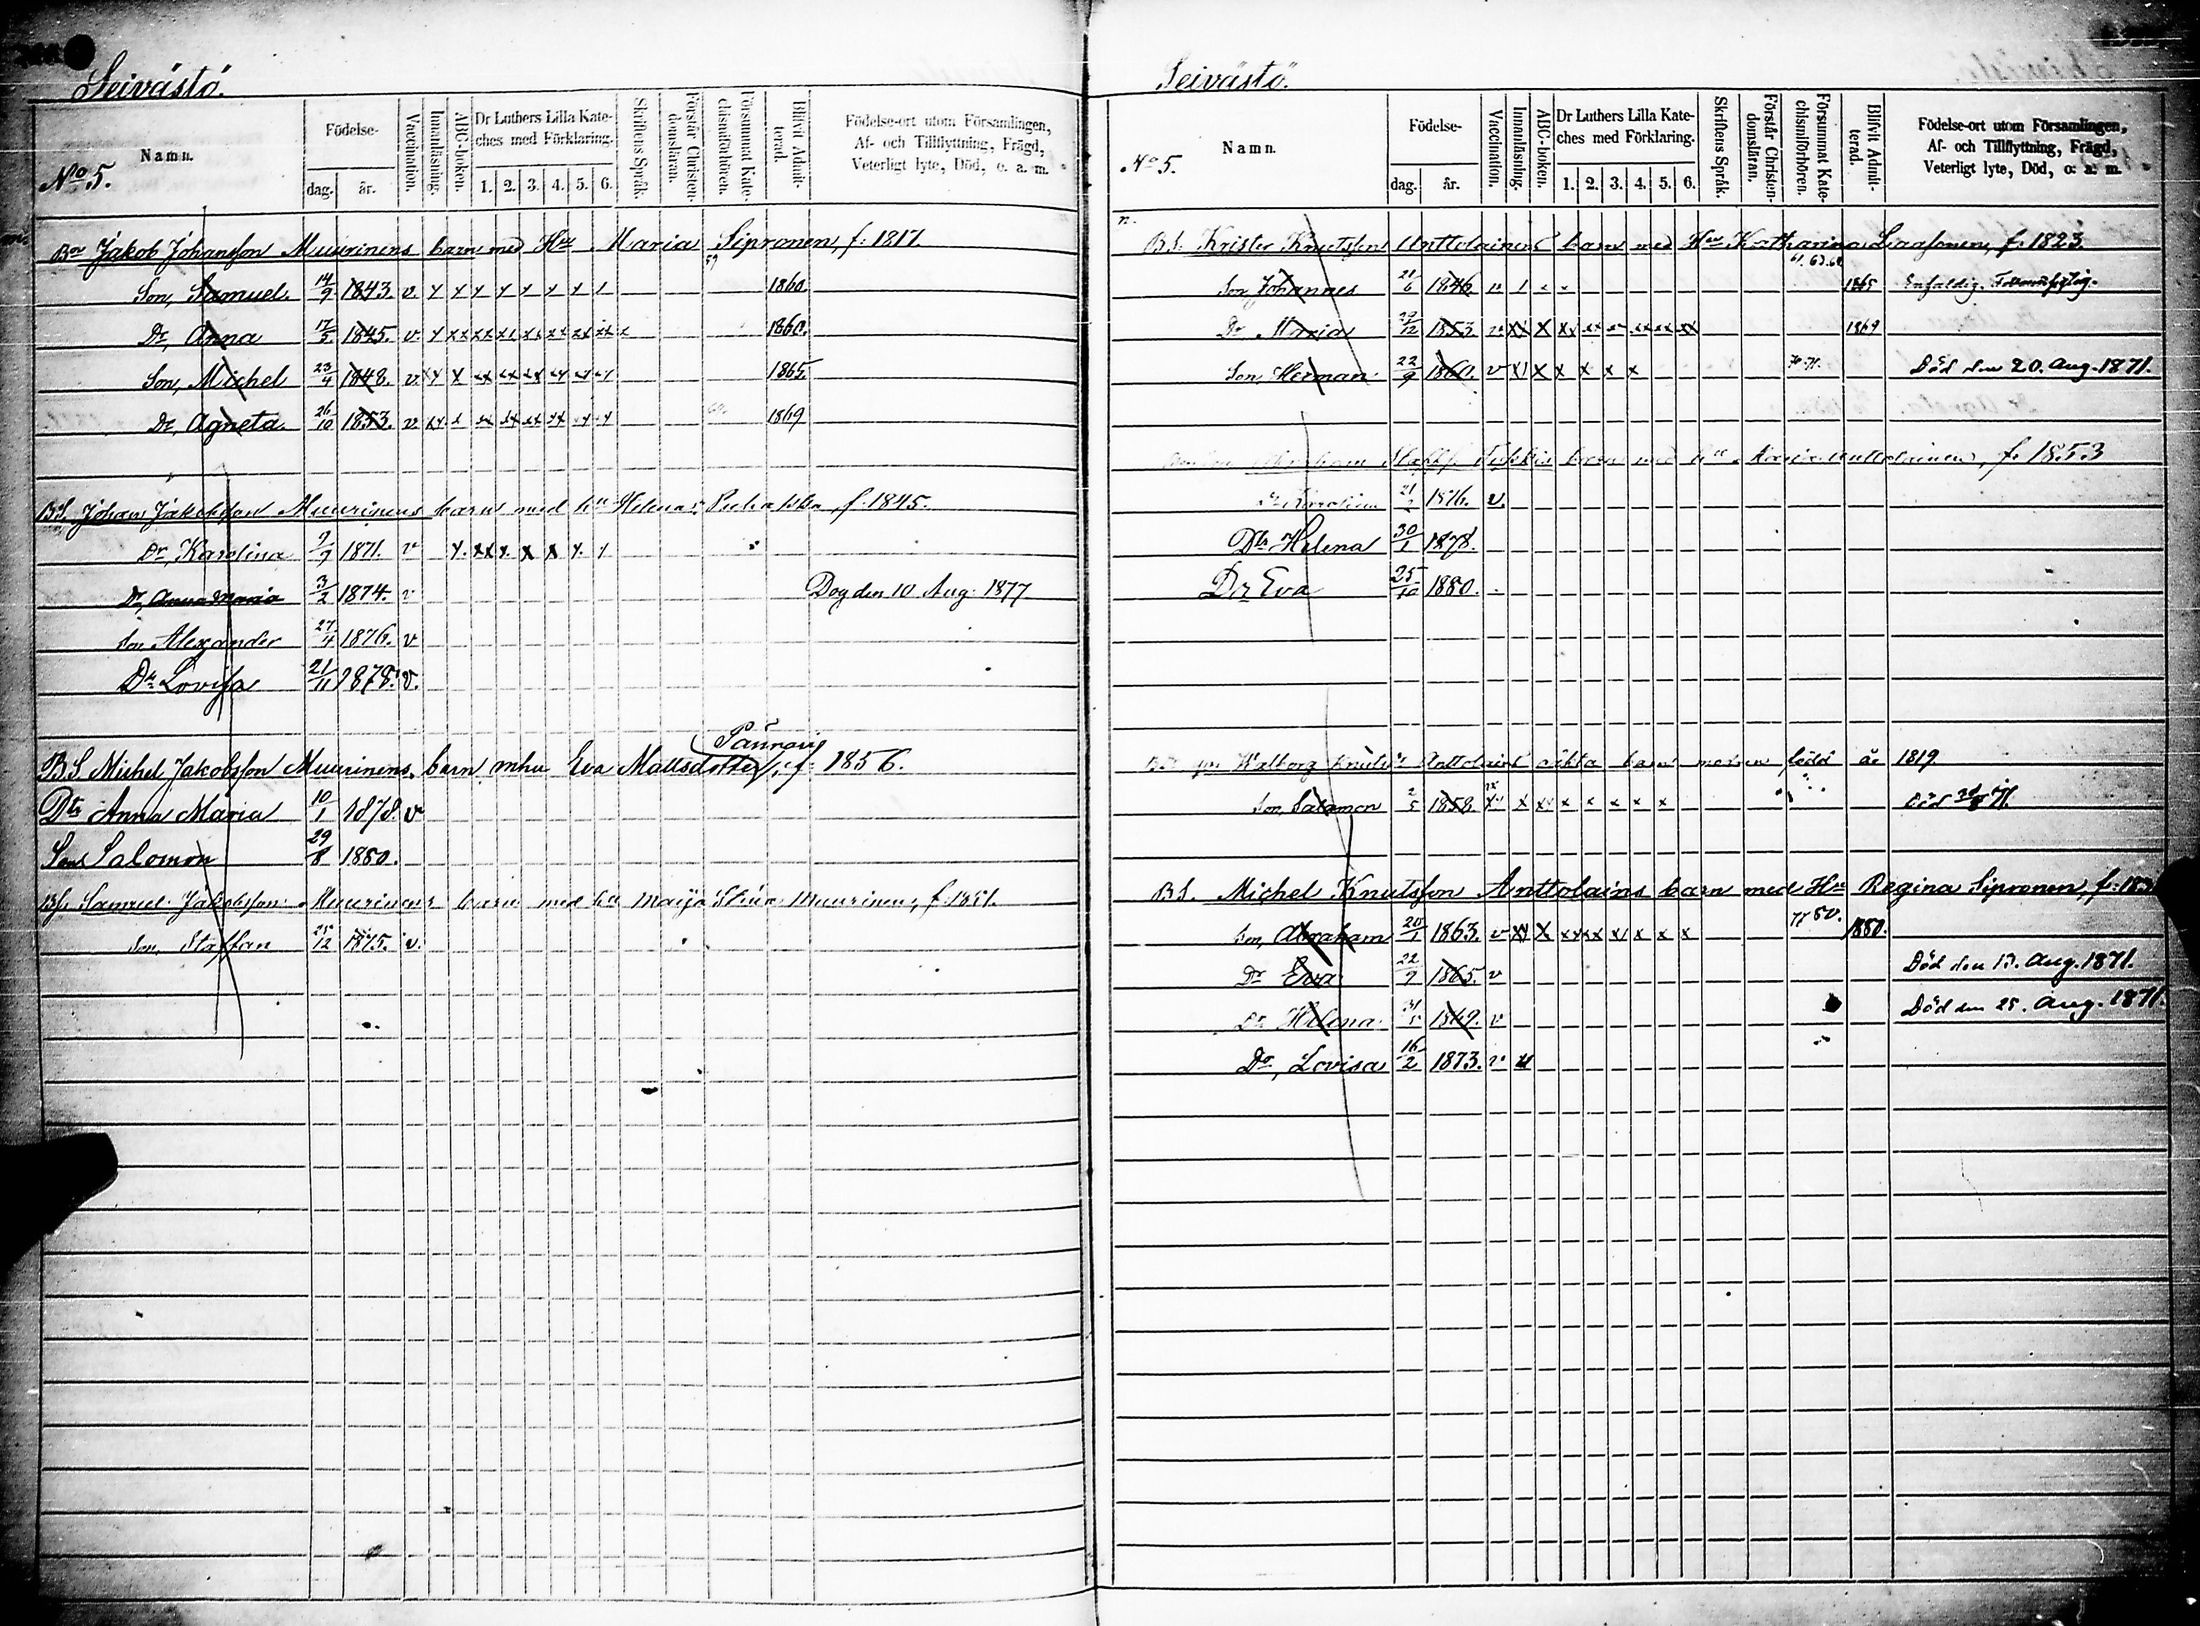 Seivästö.
No 5.
Namn.
Födelse-
dag. år.
Vaccination.
Innanläsning.
ABC-boken.
Dr Luthers Lilla Kate-
ches med Förklaring.
1. 2. 3. 4. 5. 6.
Skriftens Språk.
Förstår Christen-
domsläran.
Försummat Kate-
chismiförhören.
Blifvit Admit-
terad.
Födelse-ort utom Församlingen,
Af- och Tillflyttning, Frägd,
Veterligt lyte, Död, o. a. m.
Bn Jakob Johansson Muurinens barn med Hu Maria Sipronen, f. 1817.
59
Son, Samuel. 14/9 1843. v. 1860
Dr, Anna 17/5 1845. v. 1860.
Son, Michel 23/4 1848. v. 1865.
Dr, Agneta. 26/10 1853. v. 1869
BS. Johan Jakobsson Muurinens barn med hu Helena f. 1845.
Dr, Karolina 7/9 1871. v
Dr, Anna Maria 3/2 1874. v Dog den 10 Aug. 1877
Son Alexander 27/4 1876. v
Dr Lovisa 21/11 1878. v.
Paunovi
BS Michel Jakobsson Muurinens, barn mhu Eva Mattsdotter, f. 1856.
Dtr Anna Maria 10/1 1878. v
Son Salomon 29/8 1880.
Bs. Samuel Jakobsson Muurinens barn med hu Maija Stina Muurinen, f. 1851.
Son, Staffan 25/12 1875. v.
Seivästö.
No 5.
Namn.
Födelse-
dag. år.
Vaccination.
Innanläsning.
ABC-boken.
Dr Luthers Lilla Kate-
ches med Förklaring.
1. 2. 3. 4. 5. 6.
Skriftens Språk.
Förstår Christen-
domsläran.
Försummat Kate-
chismiförhören.
Blifvit Admit-
terad.
Födelse-ort utom Församlingen,
Af- och Tillflyttning, Frägd,
Veterligt lyte, Död, o. a. m.
n.
BS. Krister Knutsson Anttolainens barn med Hu Katharina f. 1823.
Son, Johannes 21/6 1846 v 1865 Enfaldig.
Dr Maria 29/12 1853. v 1869
Son Herman 22/9 1860. v 70.71. Död den 20. Aug. 1871.
barn med hu Maria Anttolainen, f. 1853
Dr Karolina 21/2 1876. v.
Dtr Helena 30/1 1878.
Dr Eva 25/10 1880.
Walborg Knuts Anttolains oäkta barn modren född år 1819
Son, Salamon 2/5 1858. Död 71.
BS. Michel Knutsson Anttolains barn med Hu Regina Sipronen, f. 183
Son, Abraham 20/1 1863. v 77 80. 1880.
Dr Eva 22/9 1865. v Död den 13. Aug. 1871.
Dr Helena 31/5 1869. v Död den 25. Aug. 1871.
Dr, Lovisa 16/2 1873. v